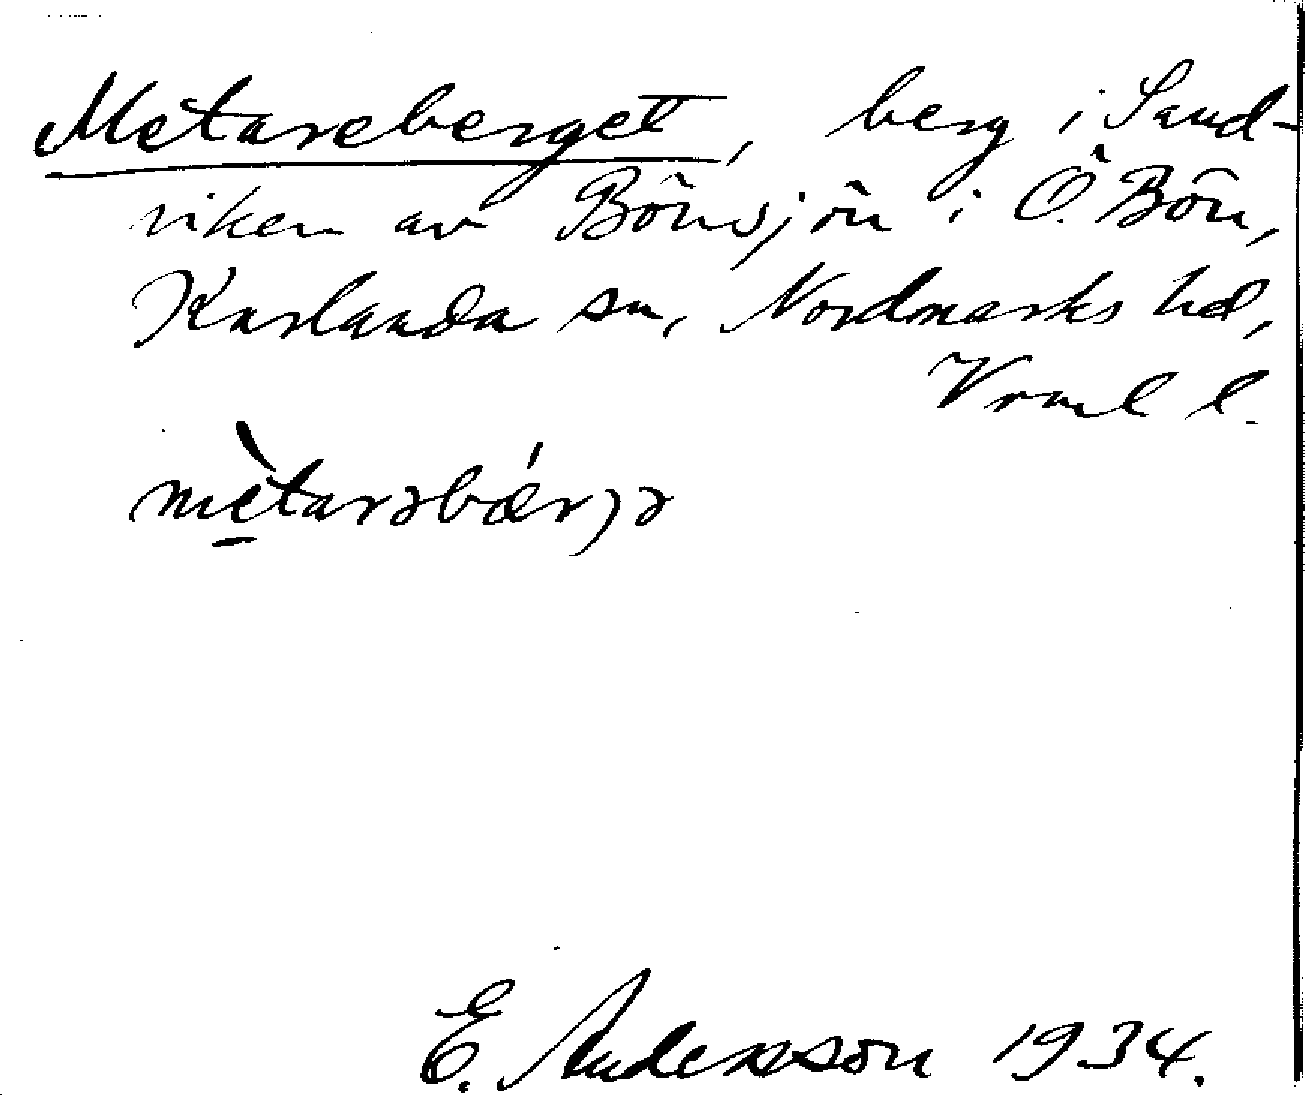 Metareberget, berg i Sand-
viken av Bönsjön i Ö. Bön,
Karlanda sn, Nordmarks hd,
Vrml l.
mètarəbǽrjə
E. Andersson 1934.